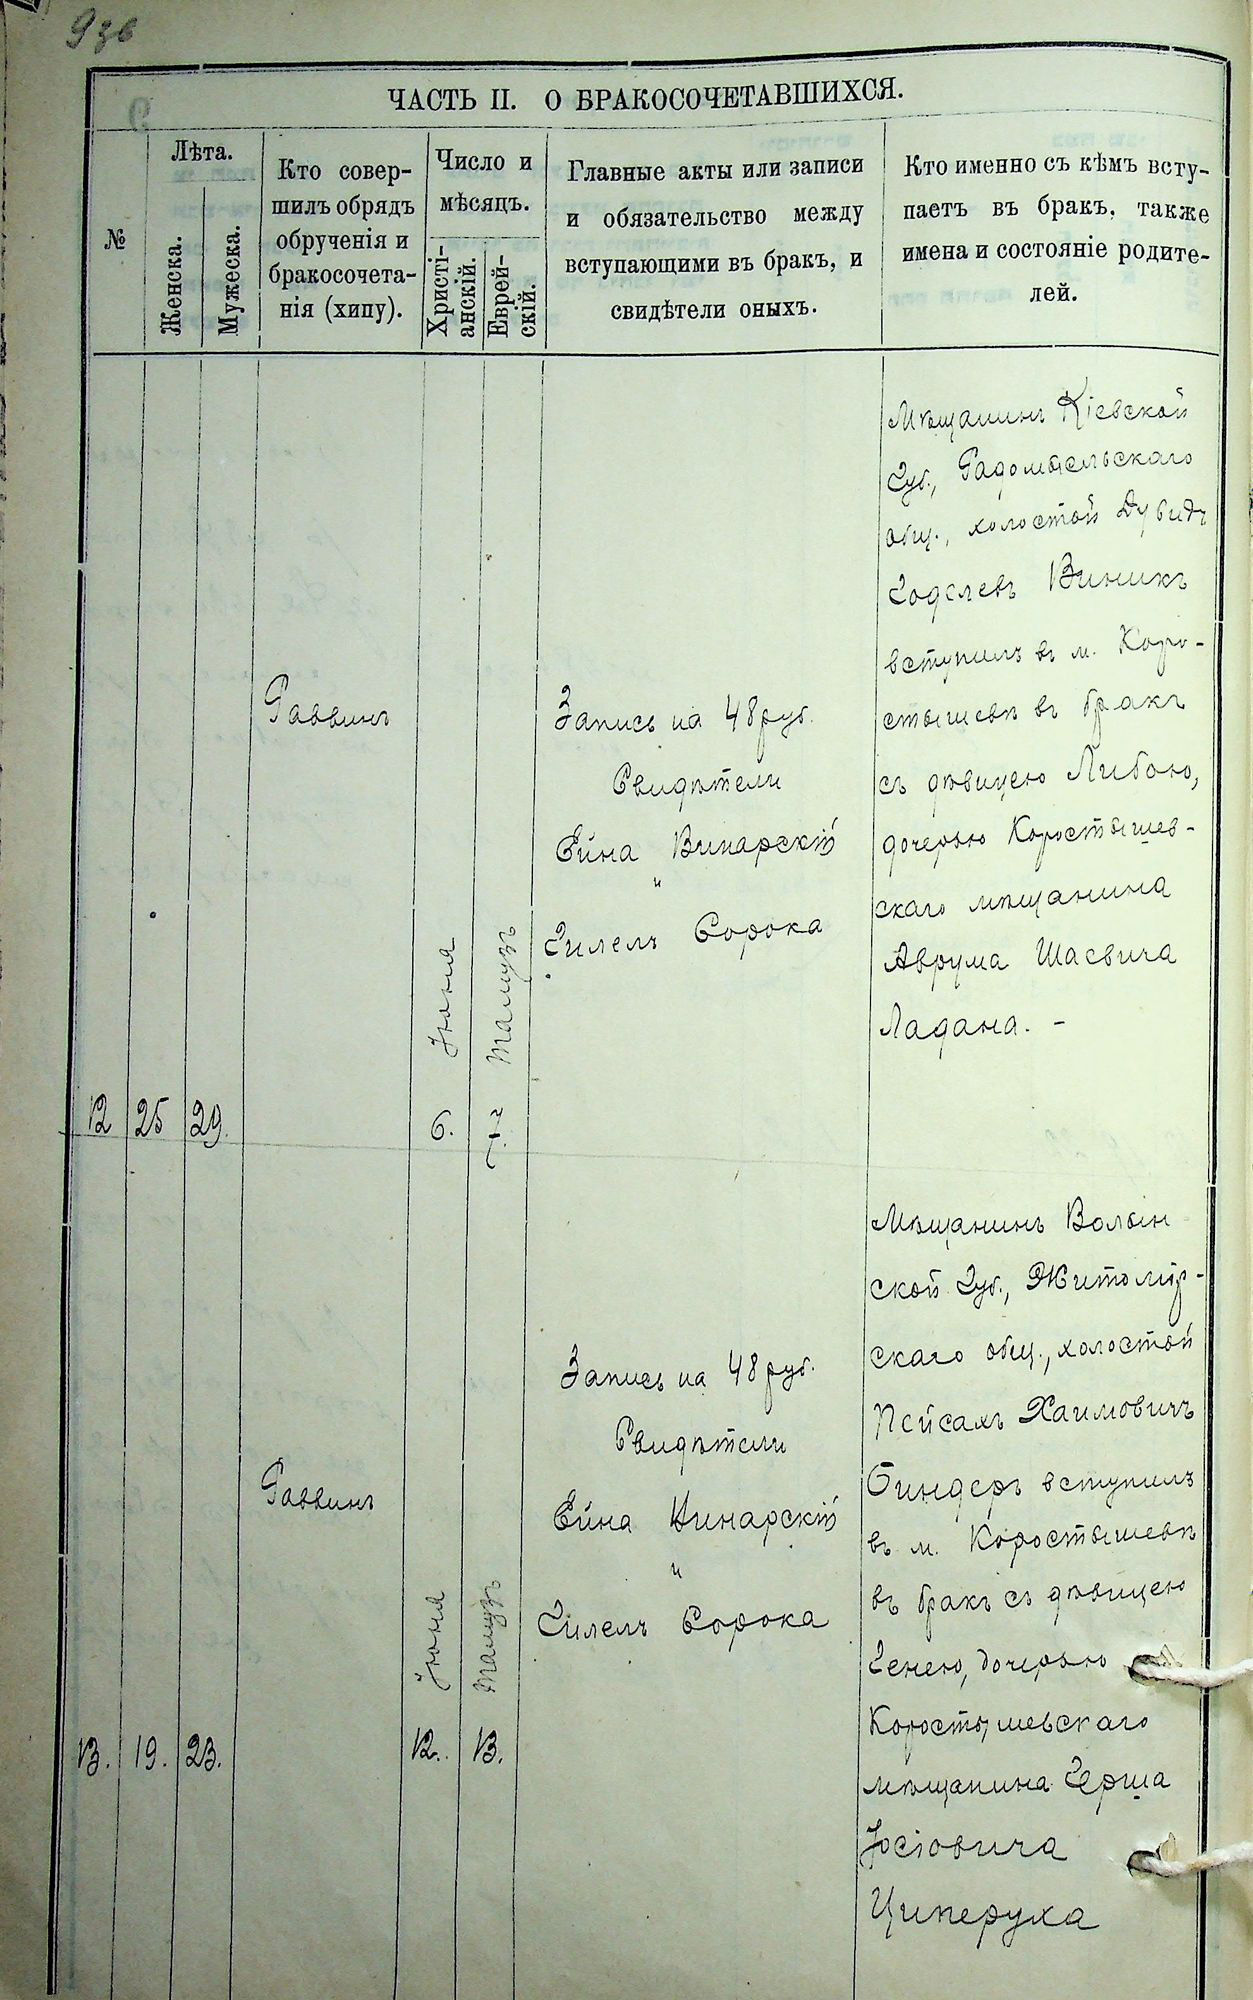 93б
ЧАСТЬ II. О БРАКОСОЧЕТАВШИХСЯ.
№
Лѣта.
Женска.
Мужеска.
Кто совер-
шилъ обрядъ
обрученія и
бракосочета-
нія (хипу).
Число и
мѣсяцъ.
Христі-
анскій.
Еврей-
скій.
Главные акты или записи
и обязательство между
вступающими въ бракъ, и
свидѣтели оныхъ.
Кто именно съ кѣмъ всту-
паетъ въ бракъ, также
имена и состояніе родите-
лей.
12
25
29.
Раввинъ
Іюня
6.
Тамузъ
7.
Запись на 48 руб.
Свидѣтели
Ейна Винарскій
и
Гилелъ Сорока
Мѣщанинъ Кіевской
Губ., Радомысльскаго
общ., холостой Дувидъ
Годелевъ Виникъ
вступилъ въ м. Коро-
стышевѣ въ бракъ
съ дѣвицею Либою,
дочерью Коростышев-
скаго мѣщанина
Аврума Шаевича
Ладана. -
13.
19.
23.
Раввинъ
Іюня
12.
Тамузъ
13.
Запись на 48 руб.
Свидѣтели
Ейна Винарскій
и
Гилелъ Сорока
Мѣщанинъ Волын-
ской Губ., Житомір-
скаго общ., холостой
Пейсахъ Хаимовичъ
Биндеръ вступилъ
въ м. Коростышевѣ
въ бракъ съ дѣвицею
Генею, дочерью
Коростышевскаго
мѣщанина Герша
Іосіовича
Циперука